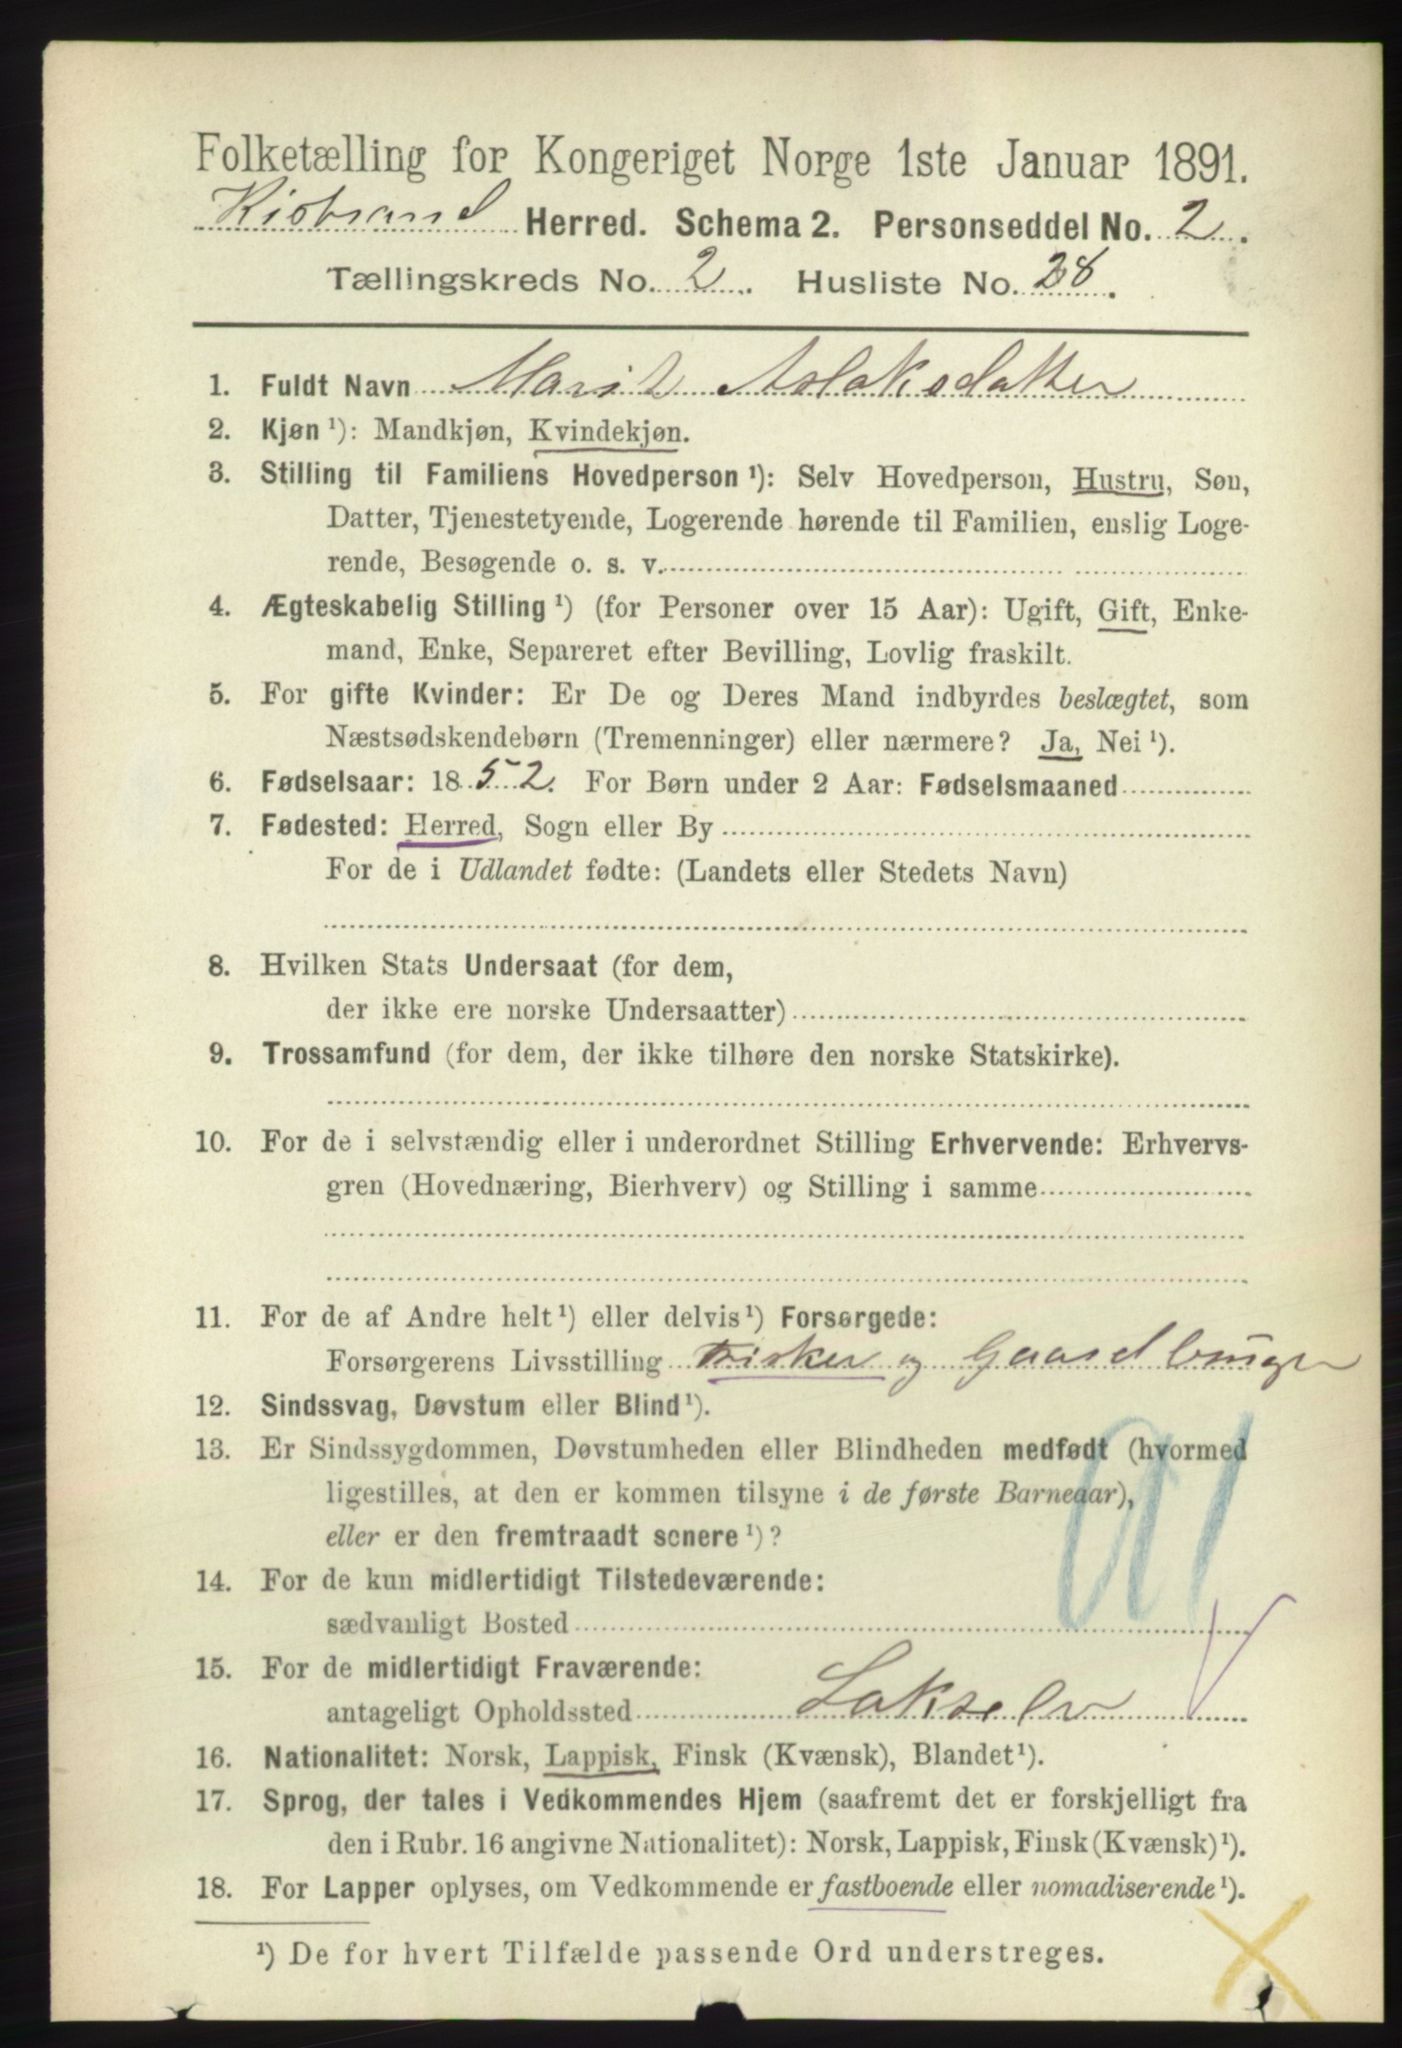 Folketælling for Kongeriget Norge 1ste Januar 1891.
Kistrand Herred. Schema 2. Personseddel No. 2.
Tællingskreds No. 2. Husliste No. 28.
1. Fuldt Navn Marit Aslaksdatter
2. Kjøn ¹): Mandkjøn, Kvindekjøn.
3. Stilling til Familiens Hovedperson ¹): Selv Hovedperson, Hustru, Søn,
Datter, Tjenestetyende, Logerende hørende til Familien, enslig Loge-
rende, Besøgende o. s. v.
4. Ægteskabelig Stilling ¹) (for Personer over 15 Aar): Ugift, Gift, Enke-
mand, Enke, Separeret efter Bevilling, Lovlig fraskilt.
5. For gifte Kvinder: Er De og Deres Mand indbyrdes beslægtet, som
Næstsødskendebørn (Tremenninger) eller nærmere? Ja, Nei ¹).
6. Fødselsaar: 1852. For Børn under 2 Aar: Fødselsmaaned
7. Fødested: Herred, Sogn eller By
For de i Udlandet fødte: (Landets eller Stedets Navn)
8. Hvilken Stats Undersaat (for dem,
der ikke ere norske Undersaatter)
9. Trossamfund (for dem, der ikke tilhøre den norske Statskirke).
10. For de i selvstændig eller i underordnet Stilling Erhvervende: Erhvervs-
gren (Hovednæring, Bierhverv) og Stilling i samme
11. For de af Andre helt ¹) eller delvis ¹) Forsørgede:
Forsørgerens Livsstilling Fisker og Gaardbruger
12. Sindssvag, Døvstum eller Blind ¹).
13. Er Sindssygdommen, Døvstumheden eller Blindheden medfødt (hvormed
ligestilles, at den er kommen tilsyne i de første Barneaar),
eller er den fremtraadt senere ¹)?
14. For de kun midlertidigt Tilstedeværende:
sædvanligt Bosted
15. For de midlertidigt Fraværende:
antageligt Opholdssted Lakselv
16. Nationalitet: Norsk, Lappisk, Finsk (Kvænsk), Blandet ¹).
17. Sprog, der tales i Vedkommendes Hjem (saafremt det er forskjelligt fra
den i Rubr. 16 angivne Nationalitet): Norsk, Lappisk, Finsk (Kvænsk) ¹).
18. For Lapper oplyses, om Vedkommende er fastboende eller nomadiserende ¹).
¹) De for hvert Tilfælde passende Ord understreges.